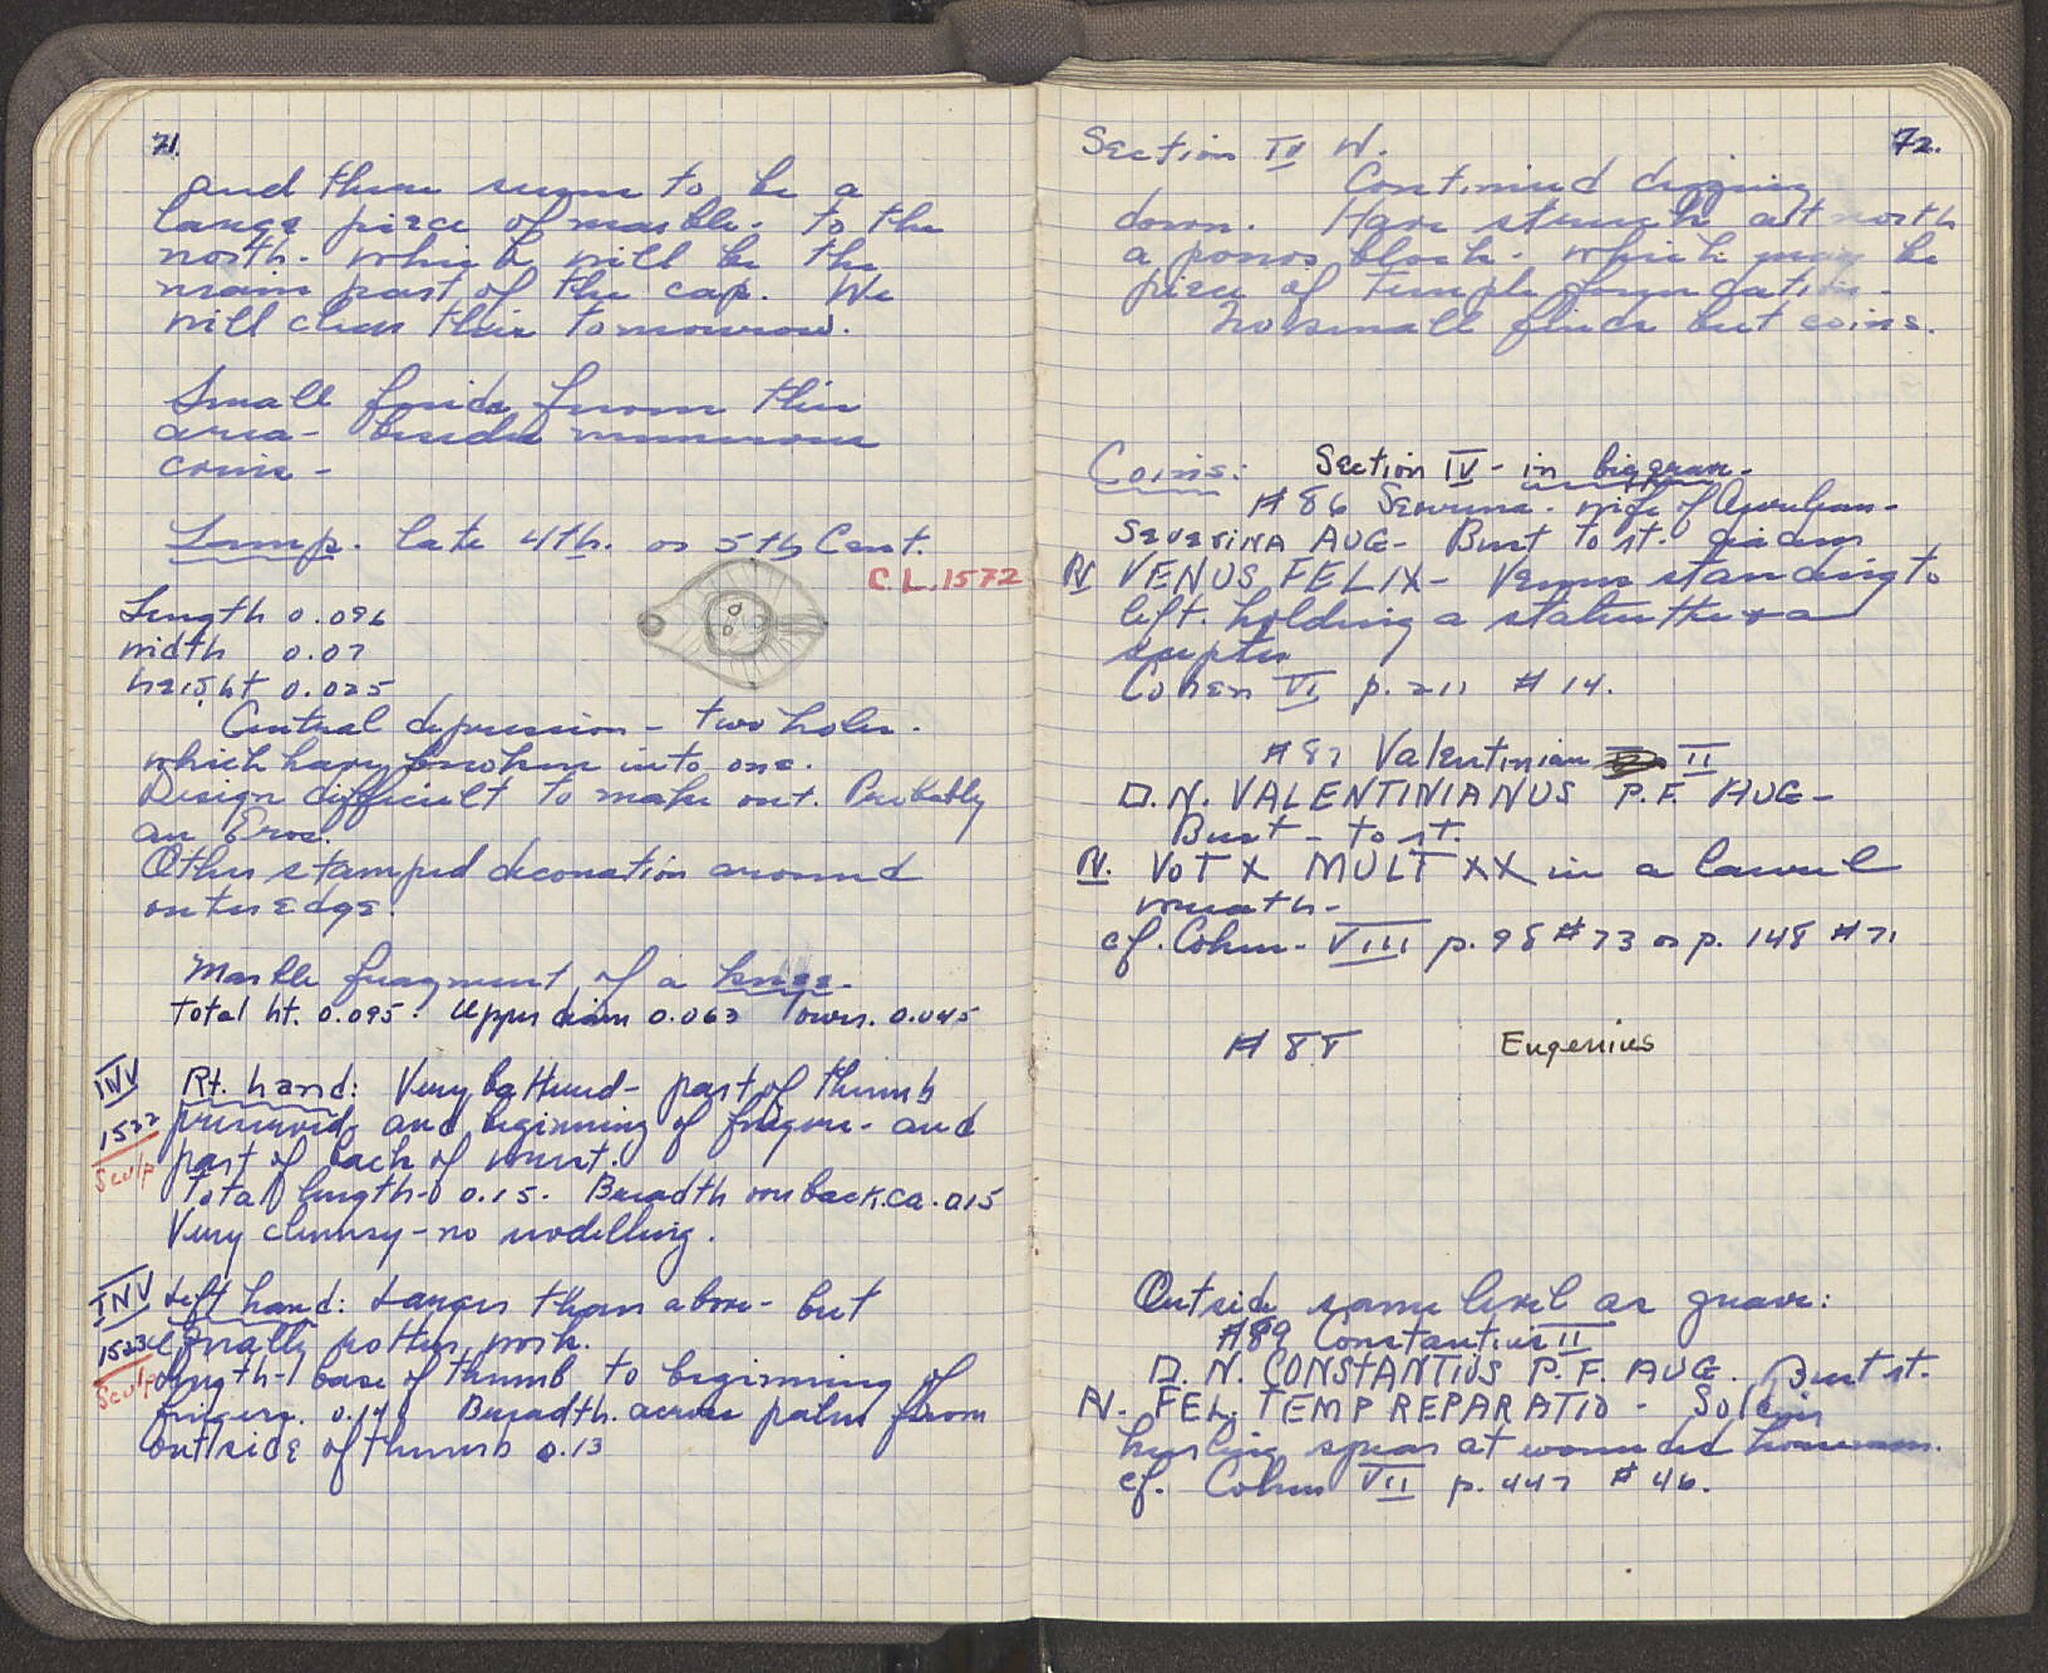 71.
and there seems to be a
large piece of marble - to the
north - which will be the
main part of the cap. We
will clear this tomorrow.
Small finds from this
area - besides numerous
coins -
Lamp. late 4th. or 5th Cent.
C.L. 1572
Length 0.096
width 0.07
height 0.025
Central depression - two holes.
which have broken into one.
Design difficult to make out. Probably
an Eros.
Other stamped decoration around
outer edge.
Marble fragment of a knee.
Total ht. 0.095. Upper diam 0.063 lower. 0.045
INV
1522
Sculp
Rt. hand: Very battered - part of thumb
preserved, and beginning of fingers - and
part of back of wrist.
Total length - 0.15. Breadth on back. ca. 015
Very clumsy - no modelling.
INV
1523
Sculp
Left hand: Larger than above - but
equally rotten work.
Length - base of thumb to beginning of
fingers. Breadth across palm from
outside of thumb 0.13
Section IV W. 72.
Continued digging
down. Have struck at north
a poros block - which may be
piece of Temple foundation -
No small finds but coins.
Coins: Section IV - in big grave -
#86 Severina - wife of Aurelian -
SEVERINA AUG - Bust to rt. diadem
RV VENUS FELIX - Venus standing to
left. holding a statuette & a
scepter
Cohen VI p. 211 #14.
#87 Valentinian II
D.N. VALENTINIANUS P.F. AUG -
Bust - to rt.
RV. VOT X MULT XX in a laurel
wreath -
cf. Cohen - VIII p. 98 #73 or p. 148 #71
#88 Eugenius
Outside same level as grave:
#89 Constantius II
D.N. CONSTANTIUS P.F. AUG. Bust rt.
RV. FEL. TEMP REPARATIO - Soldier
hurling spear at wounded horseman.
cf. Cohen VII p. 447 #46.